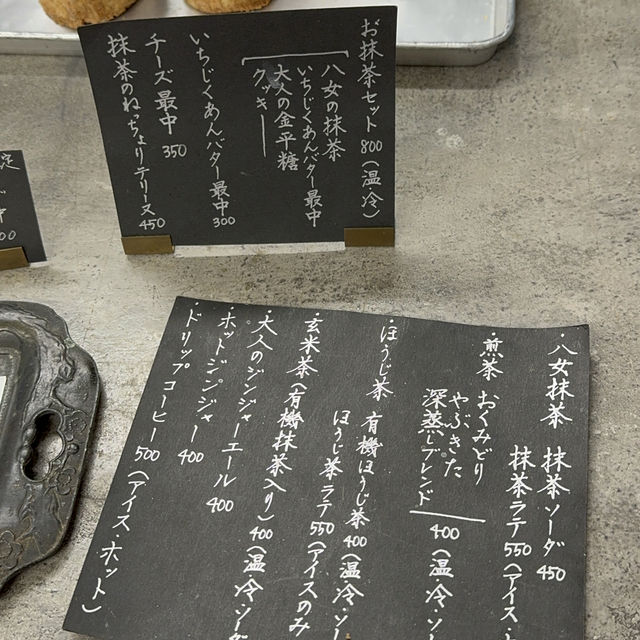 お抹茶セット 800(温・冷)
八女の抹茶
いちじくあんバター最中
大人の金平糖
クッキー
いちじくあんバター最中 300
チーズ最中 350
抹茶のねっちょりテリーヌ 450
定
中
00
・八女抹茶 抹茶ソーダ 450
抹茶ラテ 550(アイス・
・煎茶 おくみどり
やぶきた
深蒸しブレンド 400(温・冷・ソ
・ほうじ茶 有機ほうじ茶 400(温・冷・ソー
ほうじ茶ラテ 550(アイスのみ
・玄米茶(有機抹茶入り)400(温・冷・ソーダ
・大人のジンジャーエール 400
・ホットジンジャー 400
・ドリップコーヒー 500(アイス・ホット)